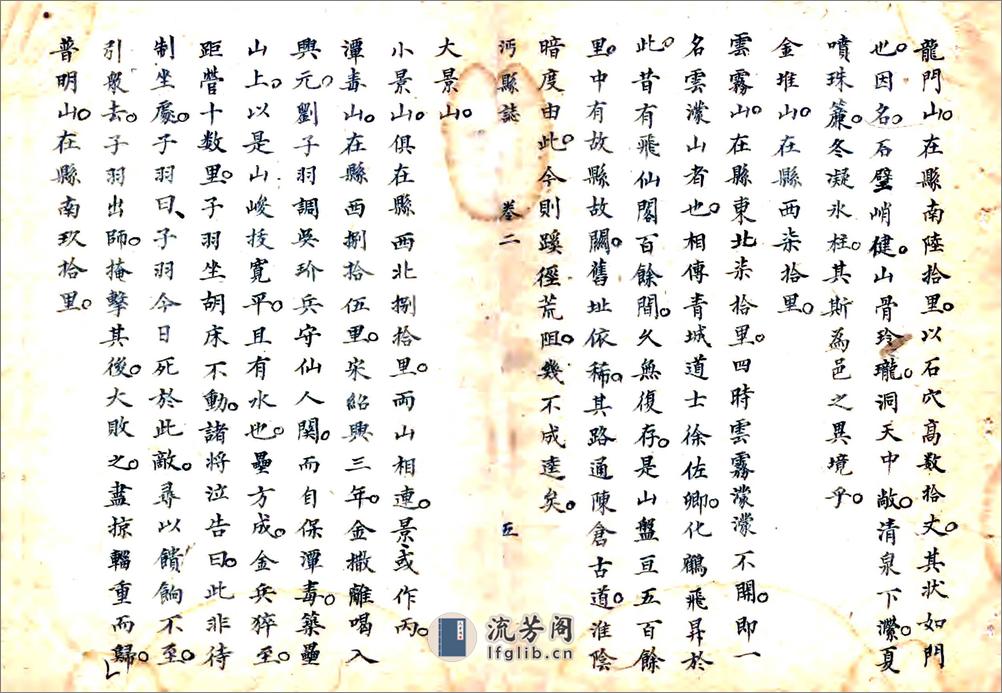 龍門山。在縣南陸拾里。以石穴高数拾丈。其狀如門
也。因名。石壁峭健。山骨玲瓏。洞天中敞。清泉下瀠。夏
噴珠簾。冬凝氷柱。其斯為邑之異境乎。
金堆山。在縣西柒拾里。
雲霧山。在縣東北柒拾里。四時雲霧濛濛不開。即一
名雲濛山者也。相傳青城道士徐佐卿。化鶴飛昇於
此。昔有飛仙閣百餘間。久無復存。是山盤亘五百餘
里。中有故縣故關。舊址依稀。其路通陳倉古道。淮陰
暗度由此。今則蹊徑荒阻。幾不成逵矣。
沔縣誌 卷二 五
大景山。
小景山。俱在縣西北捌拾里。而山相連。景或作丙。
潭毒山。在縣西捌拾伍里。宋紹興三年。金撒離喝入
興元。劉子羽調吳玠兵守仙人関。而自保潭毒。築壘
山上。以是山峻技寬平。且有水也。壘方成。金兵猝至。
距營十数里。子羽坐胡床不動。諸将泣告曰。此非待
制坐處。子羽曰、子羽今日死於此。敵尋以饋餉不至。
引衆去。子羽出師。掩擊其後。大敗之。盡掠輜重而歸。
普明山。在縣南玖拾里。
流芳阁
lfglib.cn